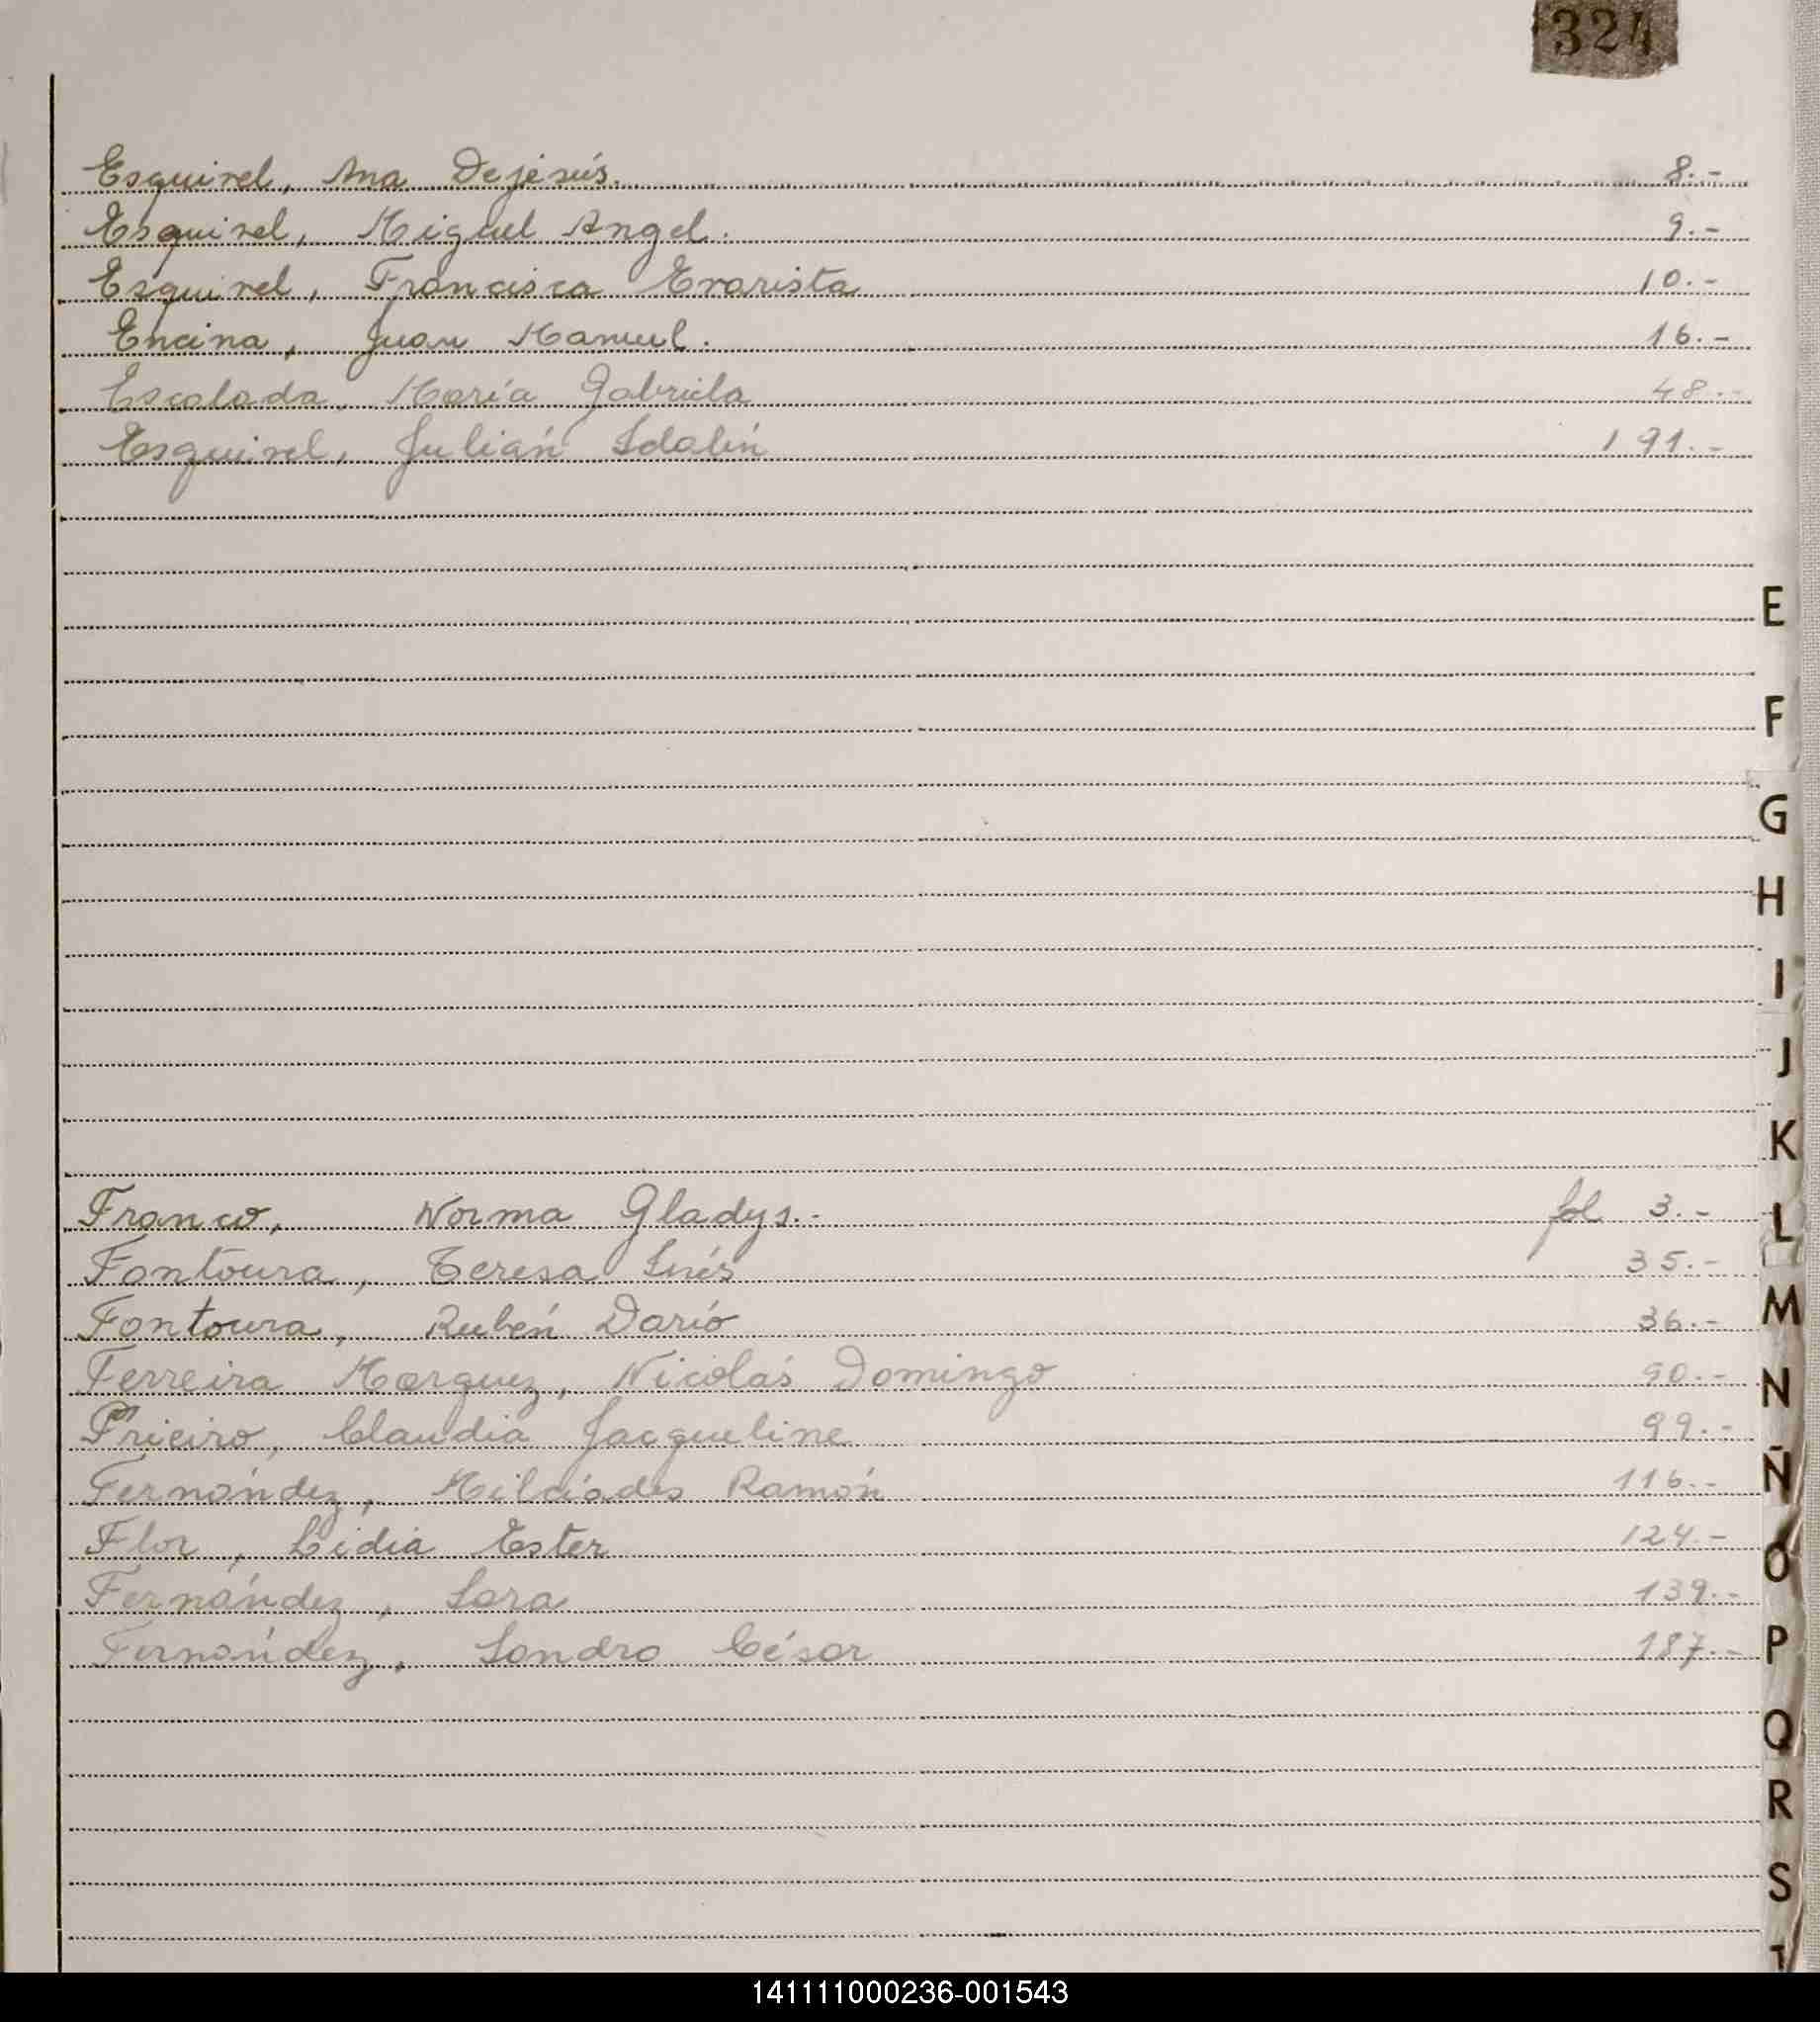 324
Esquivel, Ana Dejesús. 8.-
Esquivel, Miguel Angel. 9.-
Esquivel, Francisca Evarista 10.-
Encina, Juan Manuel. 16.-
Escalada, María Gabriela 48.-
Esquivel, Julián Idalin 191.-
E
F
G
H
I
J
K
Franco, Norma Gladys.- fol 3.-
L
Fontoura, Teresa Inés 35.-
Fontoura, Rubén Darío 36.-
M
Ferreira Marquez, Nicolás Domingo 90.-
N
Frieiro, Claudia Jacqueline 99.-
Fernández, Milciádes Ramón 116.-
Ñ
Flor, Lidia Ester 124.-
O
Fernández, Sara 139.-
Fernández, Sandro César 187.-
P
Q
R
S
T
141111000236-001543